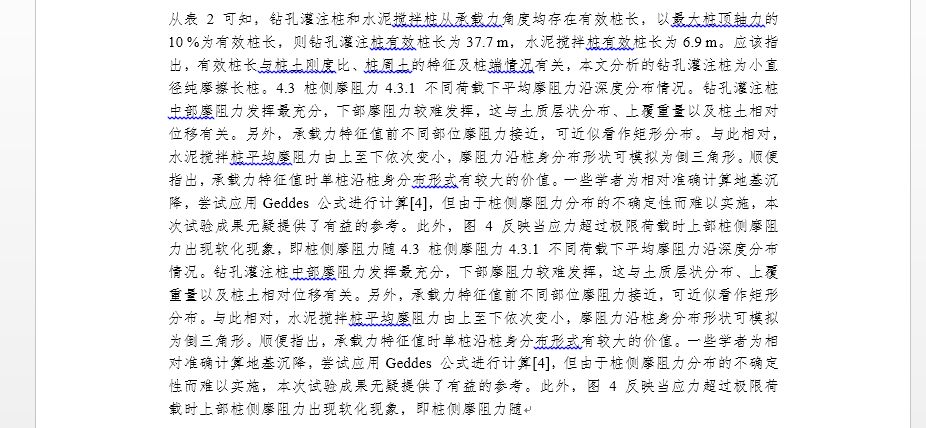 从表 2 可知，钻孔灌注桩和水泥搅拌桩从承载力角度均存在有效桩长，以最大桩顶轴力的
10 %为有效桩长，则钻孔灌注桩有效桩长为 37.7 m，水泥搅拌桩有效桩长为 6.9 m。应该指
出，有效桩长与桩土刚度比、桩周土的特征及桩端情况有关，本文分析的钻孔灌注桩为小直
径纯摩擦长桩。4.3 桩侧摩阻力 4.3.1 不同荷载下平均摩阻力沿深度分布情况。钻孔灌注桩
中部摩阻力发挥最充分，下部摩阻力较难发挥，这与土质层状分布、上覆重量以及桩土相对
位移有关。另外，承载力特征值前不同部位摩阻力接近，可近似看作矩形分布。与此相对，
水泥搅拌桩平均摩阻力由上至下依次变小，摩阻力沿桩身分布形状可模拟为倒三角形。顺便
指出，承载力特征值时单桩沿桩身分布形式有较大的价值。一些学者为相对准确计算地基沉
降，尝试应用 Geddes 公式进行计算[4]，但由于桩侧摩阻力分布的不确定性而难以实施，本
次试验成果无疑提供了有益的参考。此外，图 4 反映当应力超过极限荷载时上部桩侧摩阻
力出现软化现象，即桩侧摩阻力随 4.3 桩侧摩阻力 4.3.1 不同荷载下平均摩阻力沿深度分布
情况。钻孔灌注桩中部摩阻力发挥最充分，下部摩阻力较难发挥，这与土质层状分布、上覆
重量以及桩土相对位移有关。另外，承载力特征值前不同部位摩阻力接近，可近似看作矩形
分布。与此相对，水泥搅拌桩平均摩阻力由上至下依次变小，摩阻力沿桩身分布形状可模拟
为倒三角形。顺便指出，承载力特征值时单桩沿桩身分布形式有较大的价值。一些学者为相
对准确计算地基沉降，尝试应用 Geddes 公式进行计算[4]，但由于桩侧摩阻力分布的不确定
性而难以实施，本次试验成果无疑提供了有益的参考。此外，图 4 反映当应力超过极限荷
载时上部桩侧摩阻力出现软化现象，即桩侧摩阻力随